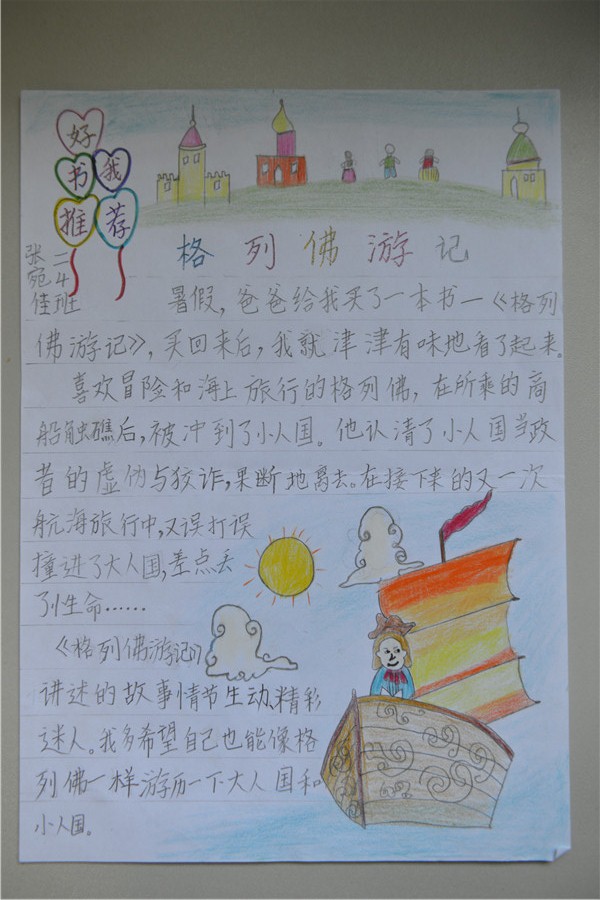 好
书我
推荐
张宛佳
二4班
格列佛游记
暑假，爸爸给我买了一本书—《格列
佛游记》，买回来后，我就津津有味地看了起来。
喜欢冒险和海上旅行的格列佛，在所乘的商
船触礁后，被冲到了小人国。他认清了小人国当政
者的虚伪与狡诈，果断地离去。在接下来的又一次
航海旅行中，又误打误
撞进了大人国，差点丢
了小生命……
《格列佛游记》
讲述的故事情节生动、精彩
迷人。我多希望自己也能像格
列佛一样游历一下大人国和
小人国。